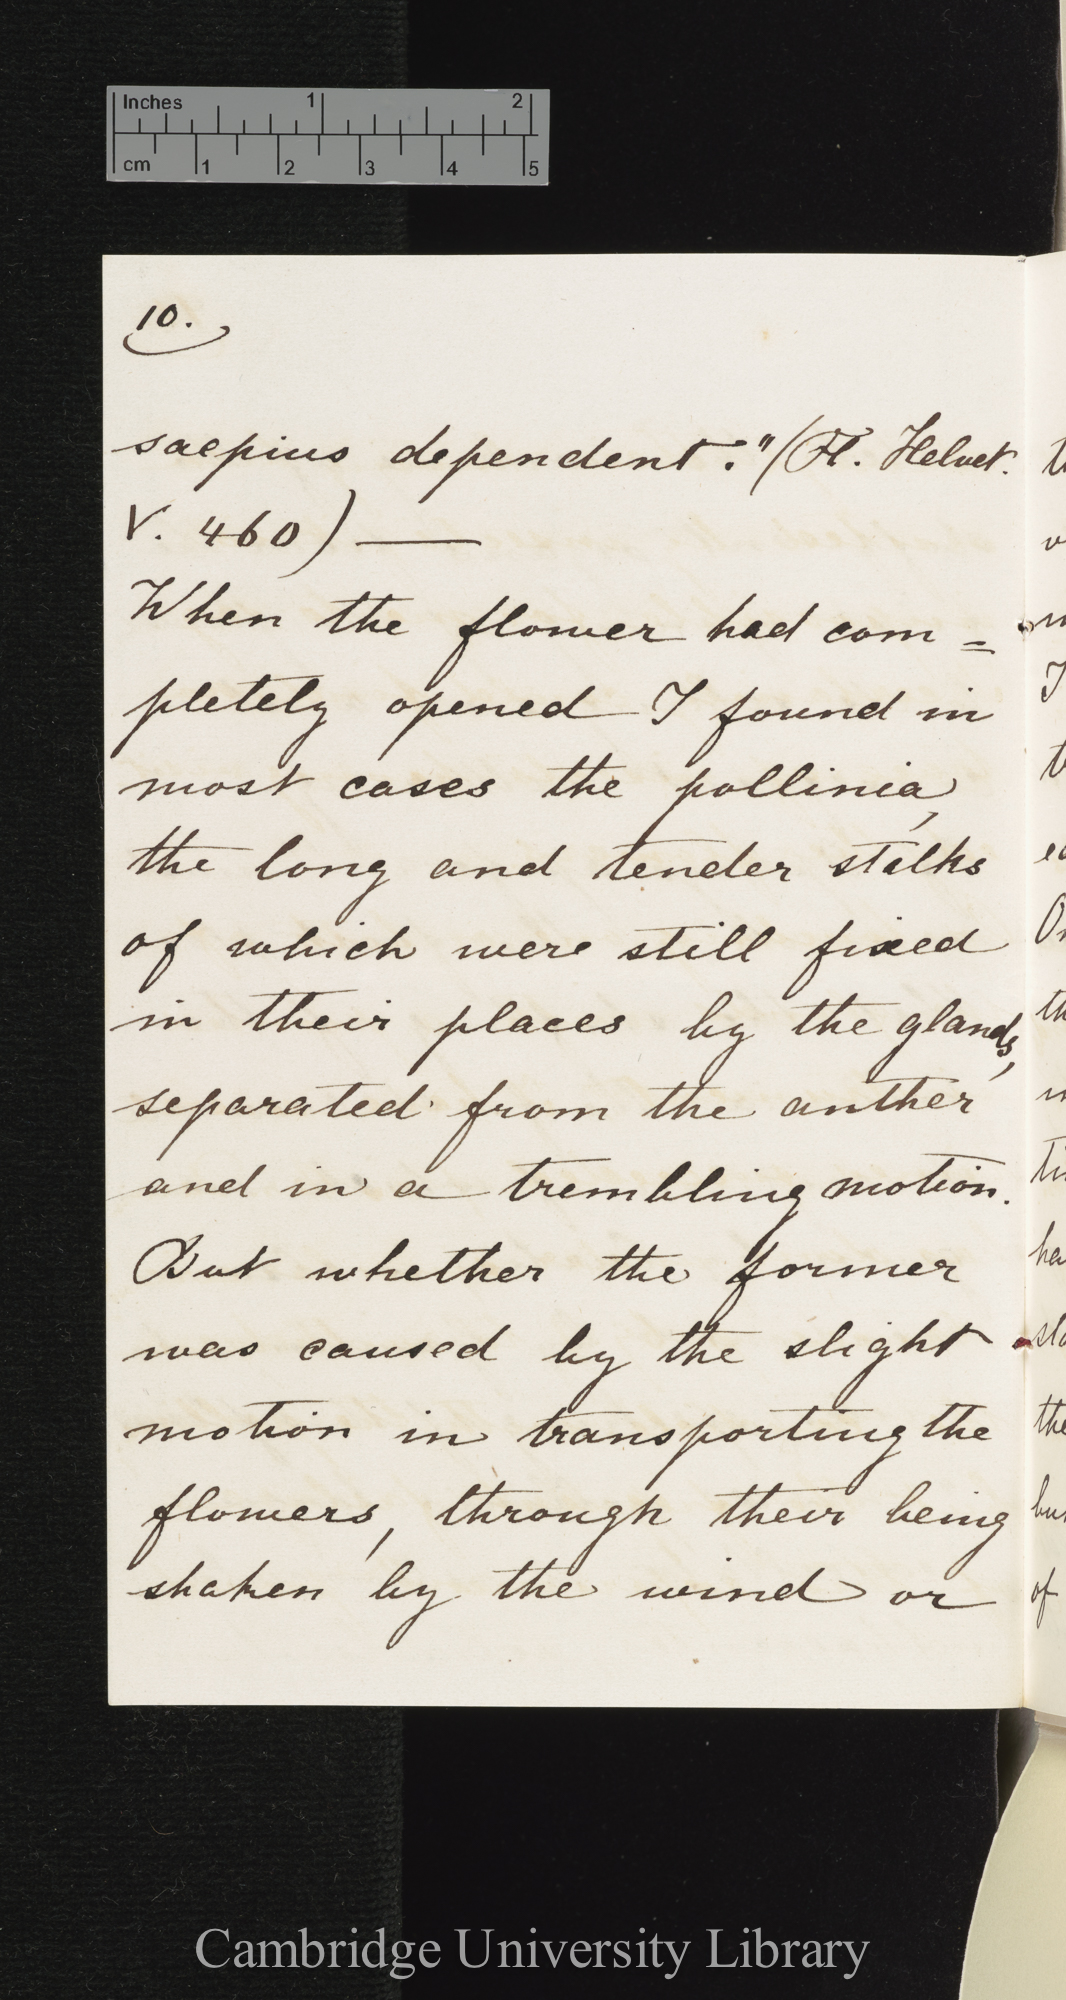 Inches 1 2
cm 1 2 3 4 5
10.
saepius dependent." (Fl. Helvet.
V. 460) —
When the flower had com=
pletely opened I found in
most cases the pollinia,
the long and tender stalks
of which were still fixed
in their places by the glands,
separated from the anther
and in a trembling motion.
But whether the former
was caused by the slight
motion in transporting the
flowers, through their being
shaken by the wind or
Cambridge University Library